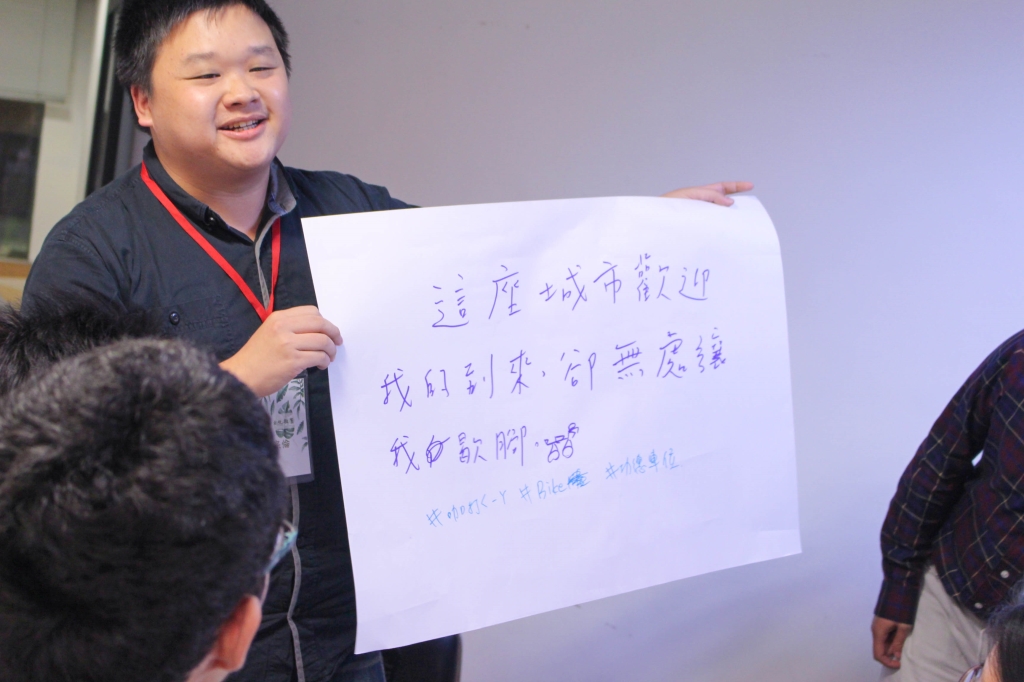 這座城市歡迎
我的到來,卻無處讓
我歇腳。
#咖ㄎㄑㄧㄚ #Bike #功德單位